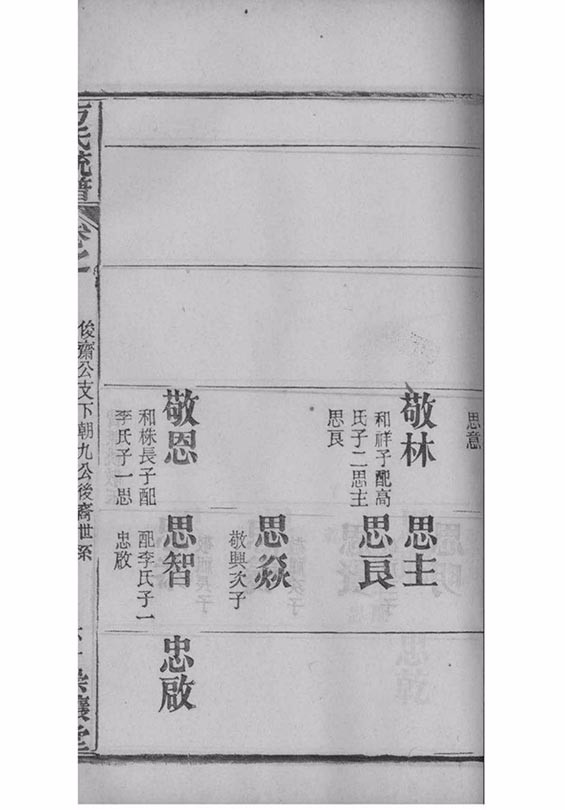 思意
敬林
和祥子配高
氏子二思主
思良
思主
思良
思焱
敬興次子
敬恩
和株長子配
李氏子一思
思智
配李氏子一
忠啟
忠啟
方氏統譜
卷之一
俊齋公支下朝九公後裔世系